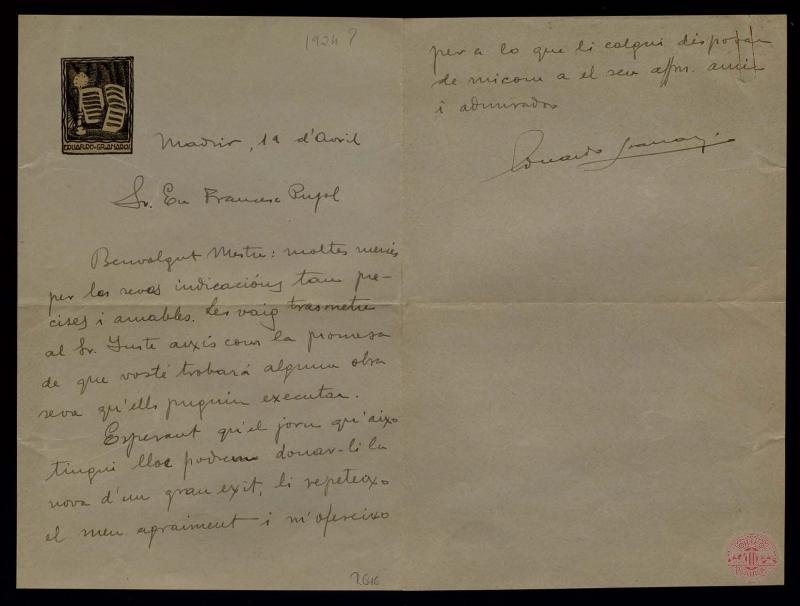 1924?
EDUARDO GRANADOS
Madrid, 1a d'Avril
Sr. En Francesc Pujol
Benvolgut Mestre: moltes mercés
per las sevas indicacións tan pre-
cises i amables. Les vaig trasmetre
al Sr. Yuste aixís com la promesa
de que vosté trobará alguna obra
seva qu'ells puguin executar.
Esperant qu'el jorn qu'aixo
tingui lloc podrem donar-li la
nova d'un gran exit, li repeteixo
el meu agraiment i m'ofereixo
per a lo que li calgui disposan
de mi com a el seu affm. amic
i admirador
Eduardo Granados
ORFEÓ